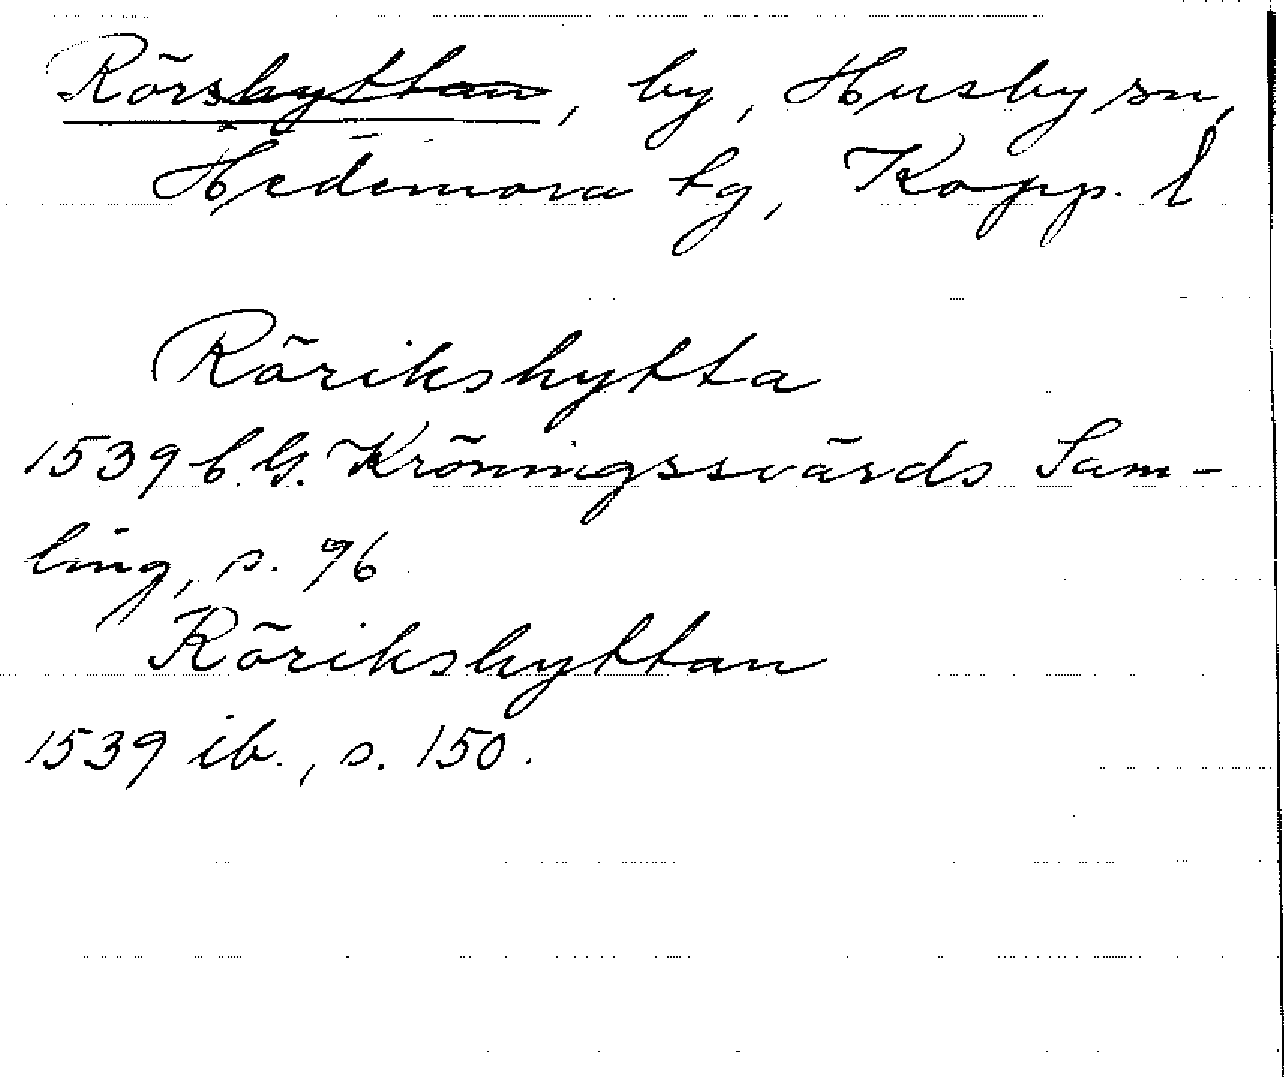 Rörshyttan, by, Husby sn,
Hedemora tg, Kopp. l
Rörikshytta
1539 C.G. Kröningssvärds Sam-
ling, s. 96
Rörikshyttan
1539 ib., s. 150.